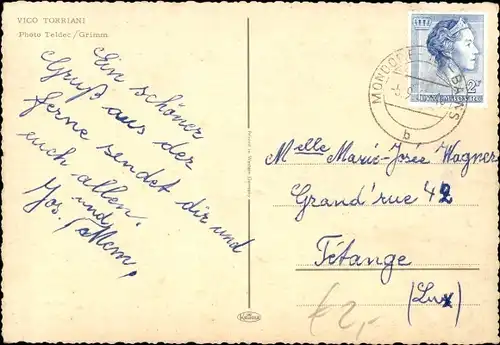 VICO TORRIANI
Photo Teldec/Grimm
Ein schöner
Gruß aus der
ferne sendet dir und
euch allen,
Jos. und Mem,
MONDORF BAINS
b
2F
LUXEMBOURG
Melle Marie-Josée Wagner
Grand'rue 42
Tétange
(Lux)
€2,-
Krüger